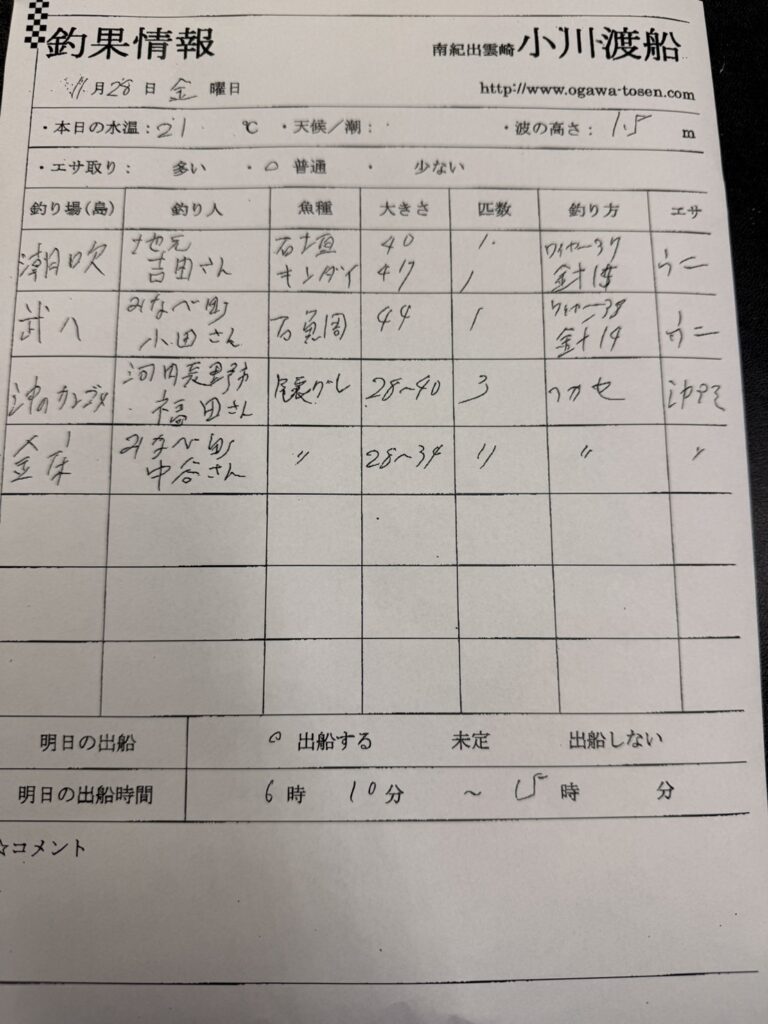 釣果情報 南紀出雲崎 小川渡船
11月28日 金 曜日 http://www.ogawa-tosen.com
・本日の水温：21 ℃ ・天候／潮： ・波の高さ： 1.5 m
・エサ取り： 多い ・○ 普通 ・ 少ない
釣り場(島) 釣り人 魚種 大きさ 匹数 釣り方 エサ
潮吹 地元 石垣 40 1 ワイヤー37 ウニ
吉田さん キンダイ 47 1 針15
武八 みなべ町 石鯛 44 1 ワイヤー38 ウニ
小田さん 針14
沖のカンヅメ 河内長野市 尾長グレ 28〜40 3 フカセ 沖アミ
福田さん
みなべ町 〃 28〜34 11 〃 〃
中谷さん
明日の出船 ○ 出船する 未定 出船しない
明日の出船時間 6 時 10 分 〜 15 時 分
☆コメント